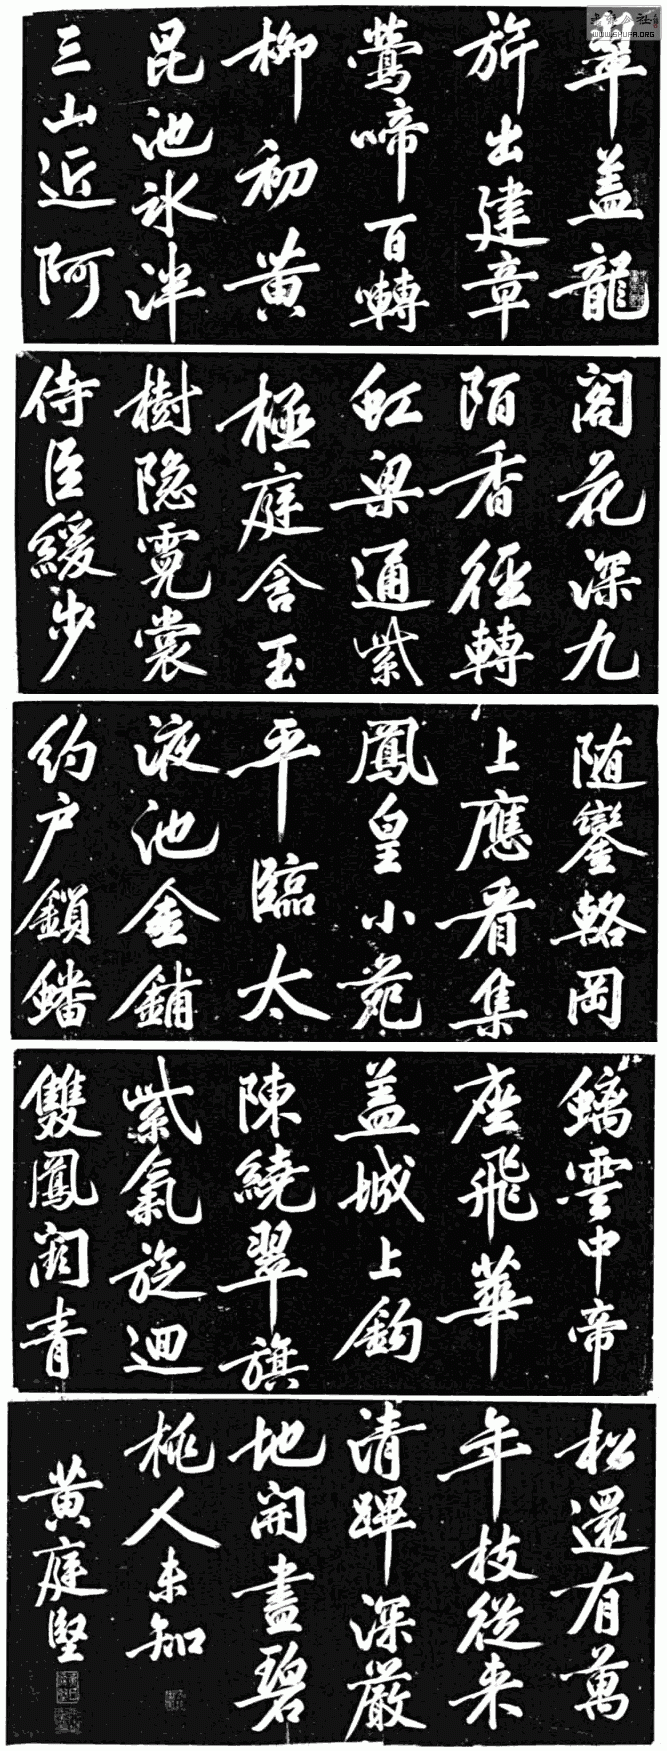 翠盖龍
旂出建章
鶯啼百轉
柳初黄
昆池冰泮
三山近阿
閣花深九
陌香徑轉
虹梁通紫
極庭含玉
樹隐霓裳
侍臣緩步
随鑾輅岡
上應看集
鳳皇小苑
平臨太
液池金鋪
約户鎖蟠
螭雲中帝
座飛華
盖城上鉤
陳繞翠旗
紫氣旋迴
雙鳳闕青
松還有萬
年枝從来
清蹕深嚴
地開盡碧
桃人未知
黄庭堅
WWW.SHUFA.ORG